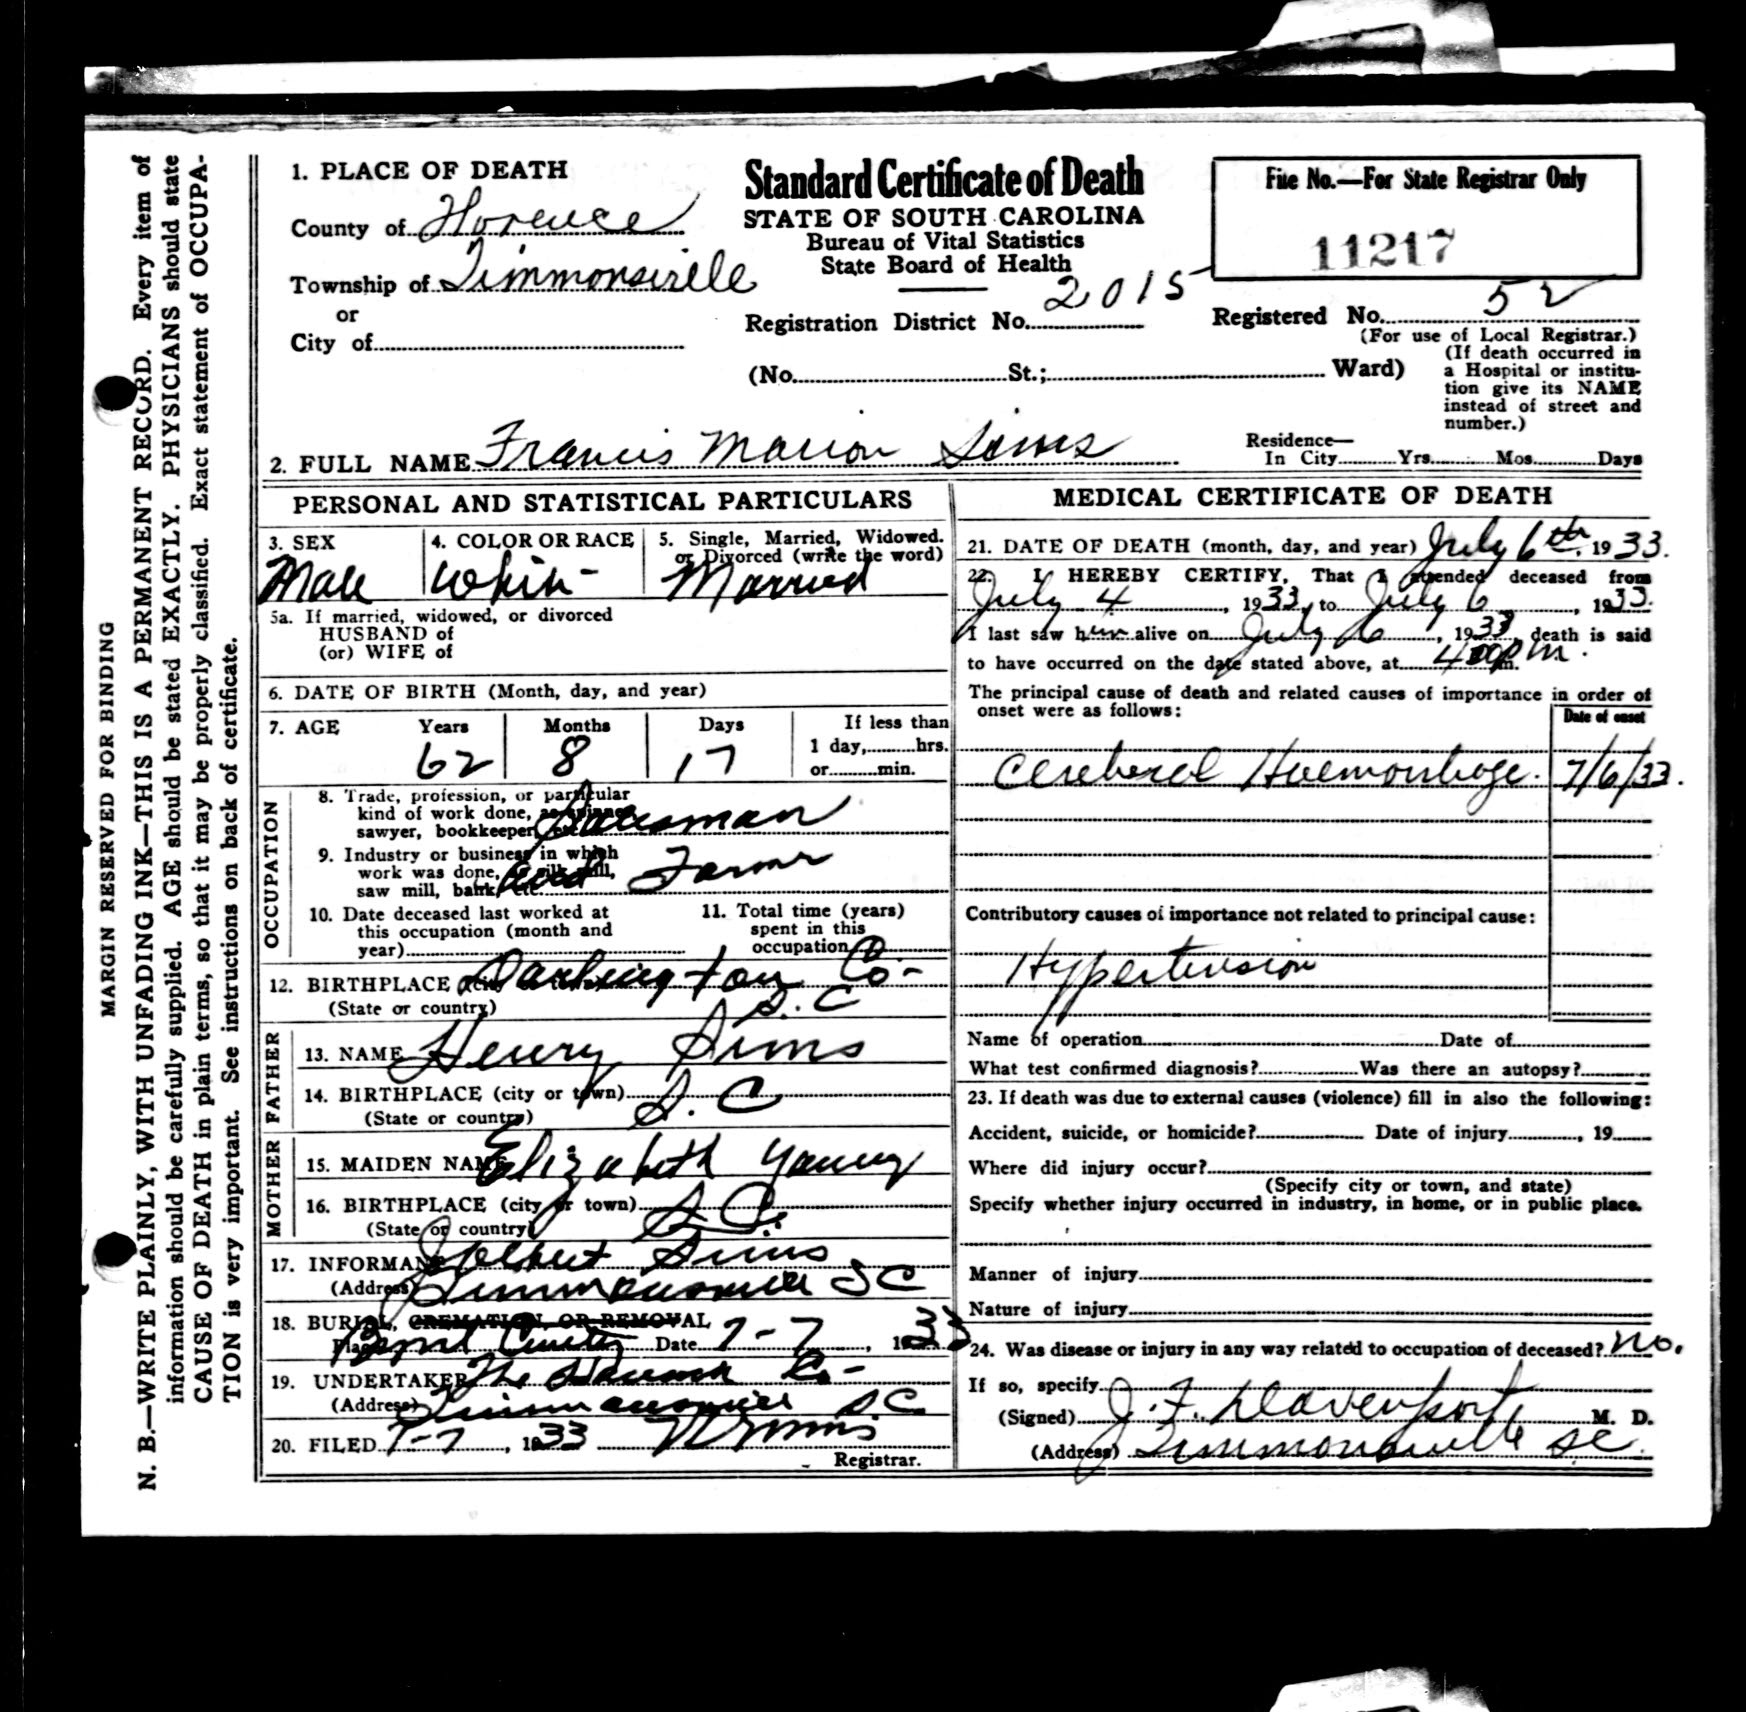 MARGIN RESERVED FOR BINDING
N. B.—WRITE PLAINLY, WITH UNFADING INK—THIS IS A PERMANENT RECORD. Every item of
information should be carefully supplied. AGE should be stated EXACTLY. PHYSICIANS should state
CAUSE OF DEATH in plain terms, so that it may be properly classified. Exact statement of OCCUPA-
TION is very important. See instructions on back of certificate.
Standard Certificate of Death
STATE OF SOUTH CAROLINA
Bureau of Vital Statistics
State Board of Health
File No.—For State Registrar Only
11217
1. PLACE OF DEATH
County of Florence
Township of Timmonsville
or
City of
Registration District No. 2015
Registered No. 52
(For use of Local Registrar.)
(No. St.; Ward)
(If death occurred in
a Hospital or institu-
tion give its NAME
instead of street and
number.)
2. FULL NAME Francis Marion Sims
Residence—
In City Yrs. Mos. Days
PERSONAL AND STATISTICAL PARTICULARS
3. SEX
Male
4. COLOR OR RACE
White
5. Single, Married, Widowed.
or Divorced (write the word)
Married
5a. If married, widowed, or divorced
HUSBAND of
(or) WIFE of
6. DATE OF BIRTH (Month, day, and year)
7. AGE Years Months Days
62 8 17
If less than
1 day, hrs.
or min.
OCCUPATION
8. Trade, profession, or particular
kind of work done, as spinner,
sawyer, bookkeeper, etc. Salesman
9. Industry or business in which
work was done, as silk mill,
saw mill, bank, etc. and Farmer
10. Date deceased last worked at
this occupation (month and
year)
11. Total time (years)
spent in this
occupation
12. BIRTHPLACE Darlington Co-
(State or country) S. C
FATHER
13. NAME Henry Sims
14. BIRTHPLACE (city or town) S. C
(State or country)
MOTHER
15. MAIDEN NAME Elizabeth Young
16. BIRTHPLACE (city or town) S. C.
(State or country)
17. INFORMANT Sims
(Address) Timmonsville SC
18. BURIAL, CREMATION, OR REMOVAL
Place Date 7-7, 1933
19. UNDERTAKER The Co-
(Address) Timmonsville SC
20. FILED 7-7, 1933
Registrar.
MEDICAL CERTIFICATE OF DEATH
21. DATE OF DEATH (month, day, and year) July 6th, 1933.
22. I HEREBY CERTIFY, That I attended deceased from
July 4, 1933, to July 6, 1933.
I last saw him alive on July 6, 1933, death is said
to have occurred on the date stated above, at 4:00 p m.
The principal cause of death and related causes of importance in order of
onset were as follows:
Date of onset
Cerebral Haemorrhage. 7/6/33.
Contributory causes of importance not related to principal cause:
Hypertension
Name of operation Date of
What test confirmed diagnosis? Was there an autopsy?
23. If death was due to external causes (violence) fill in also the following:
Accident, suicide, or homicide? Date of injury, 19
Where did injury occur?
(Specify city or town, and state)
Specify whether injury occurred in industry, in home, or in public place.
Manner of injury
Nature of injury
24. Was disease or injury in any way related to occupation of deceased? no.
If so, specify
(Signed) J. F. Davenport M. D.
(Address) Timmonsville SC.